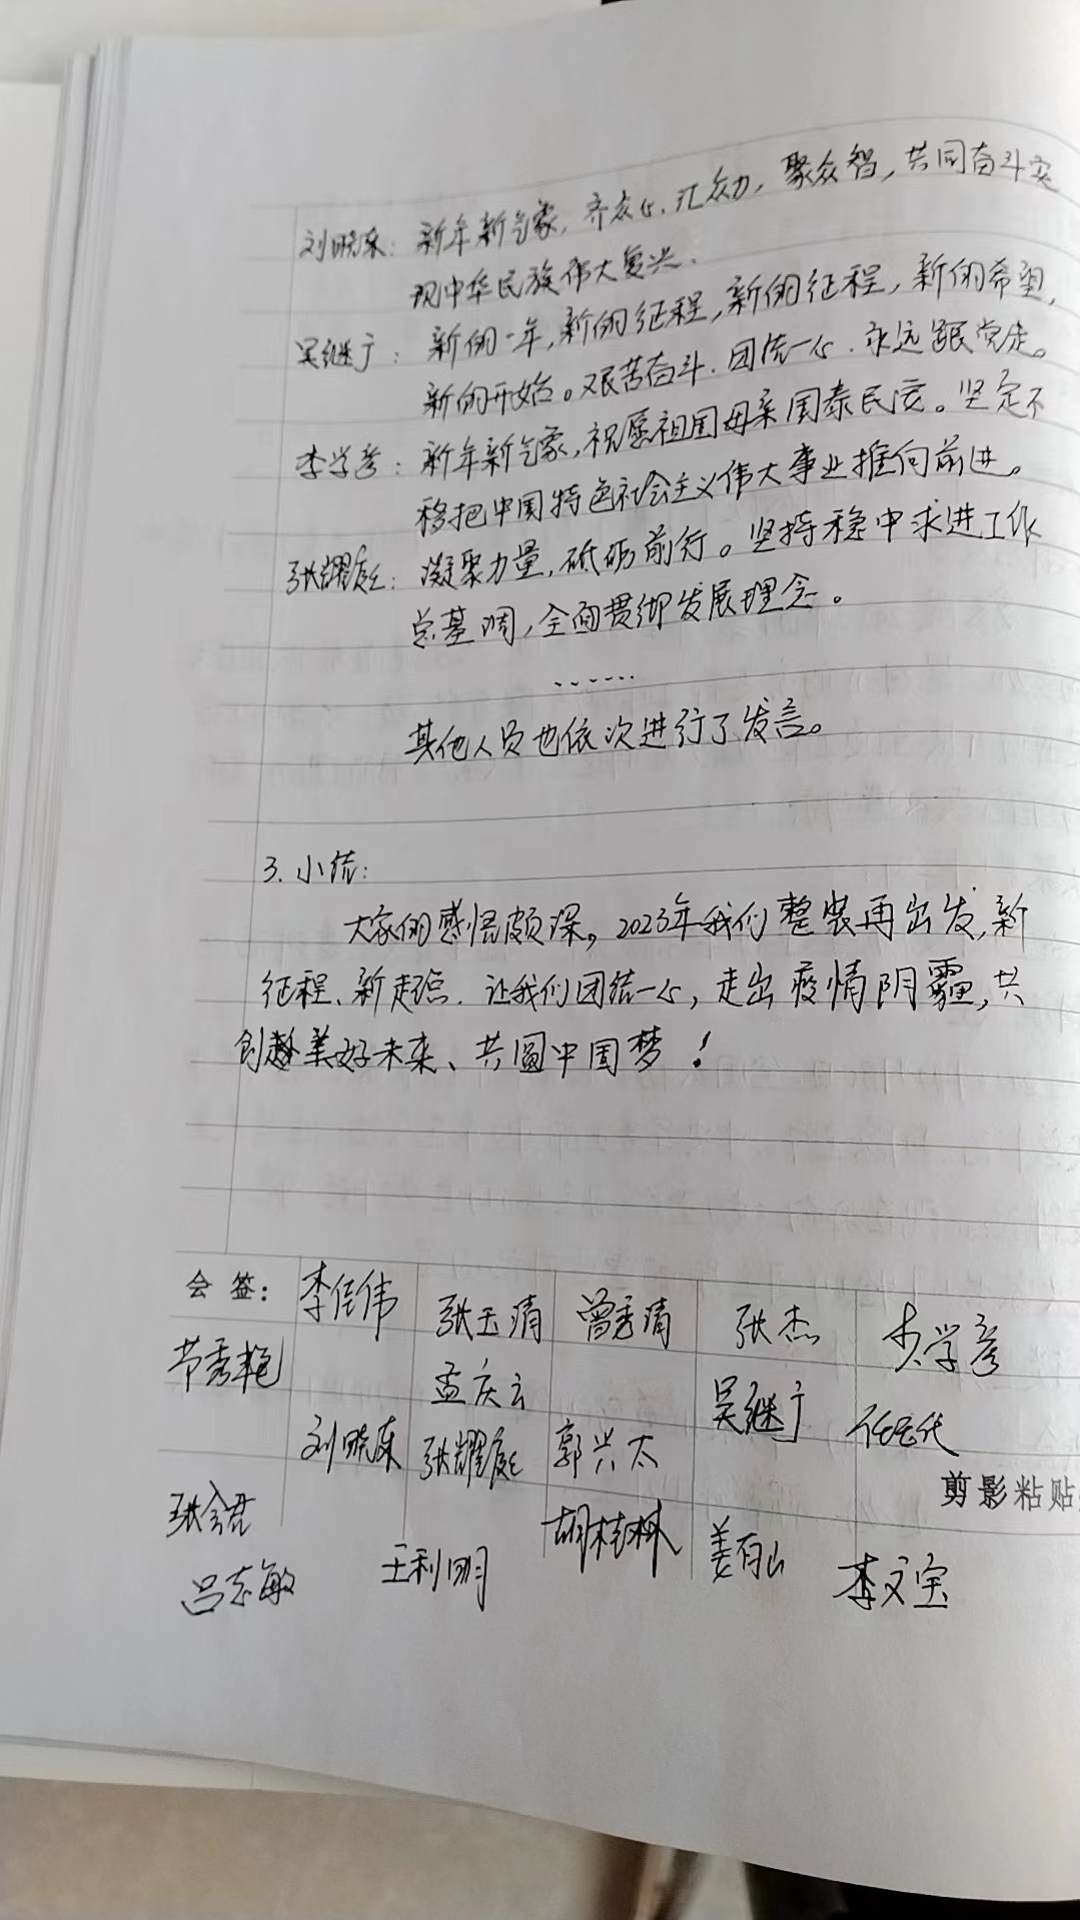 刘晓东：新年新气象，齐众心、汇众力，聚众智，共同奋斗实
现中华民族伟大复兴.
吴继宁：新的一年，新的征程，新的征程，新的希望，
新的开始。艰苦奋斗.团结一心.永远跟党走。
李学彦：新年新气象，祝愿祖国母亲国泰民安。坚定不
移把中国特色社会主义伟大事业推向前进。
张耀庭：凝聚力量，砥砺前行。坚持稳中求进工作
总基调，全面贯彻发展理念。
......
其他人员也依次进行了发言。
3. 小结：
大家的感悟颇深，2023年我们整装再出发，新
征程、新起点.让我们团结一心，走出疫情阴霾，共
创美好未来、共圆中国梦！
会 签： 李佳伟 张玉清 曾秀清 张杰 李学彦
节秀艳 孟庆云 吴继宁
刘晓东 张耀庭 郭兴太
剪影粘贴
张会君 胡桂林 姜百山
吕志敏 王利明 李文宝